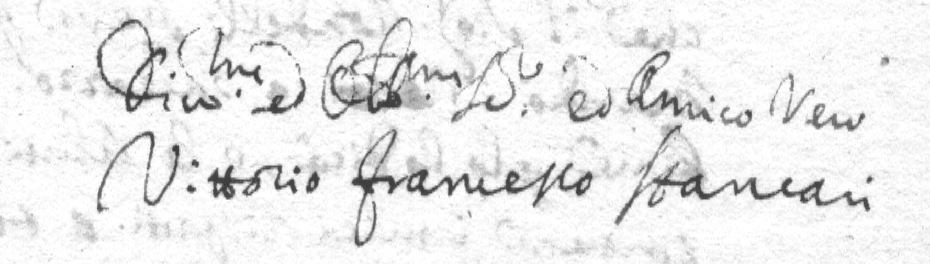 Div.mo ed Obb.mo Se.e ed Amico Vero
Vittorio Francesco Stancari